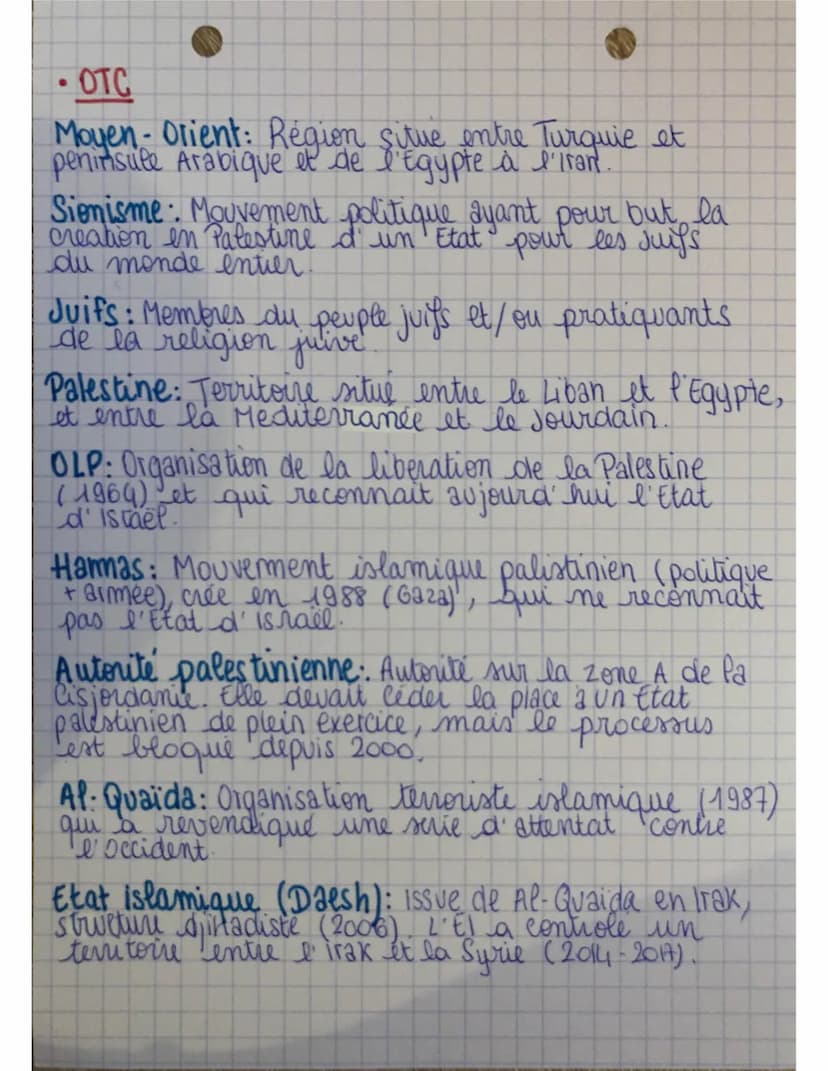 • OTC
Moyen-Orient: Région situé entre Turquie et
peninsule Arabique et de l'Egypte à l'Iran.
Sionisme: Mouvement politique ayant pour but la
creation en Palestine d'un "Etat" pour les Juifs
du monde entier.
Juifs: Membres du peuple juifs et/ou pratiquants
de la religion juive
Palestine: Territoire situé entre le Liban et l'Egypte,
et entre la Mediterranée et le Jourdain.
OLP: Organisation de la liberation de la Palestine
(1964) et qui reconnait aujourd'hui l'Etat
d'Israël.
Hammas: Mouvement islamique palistinien (politique
+ armée), crée en 1988 (Gaza), qui ne reconnait
pas l'Etat d'israël.
Autorité palestinienne: Autorité sur la zone A de la
Cisjordanie. Elle devait céder la place à un Etat
palestinien de plein exercice, mais le processus
est bloqué depuis 2000.
Al-Quaïda: Organisation terroriste islamique (1987)
qui a revendiqué une serie d'attentat contre
l'occident.
Etat islamique (Daesh): issue de Al-Quaida en Irak,
structure djihadiste (2006). L'EI a controlé un
territoire entre l'irak et la Syrie (2014-2017).